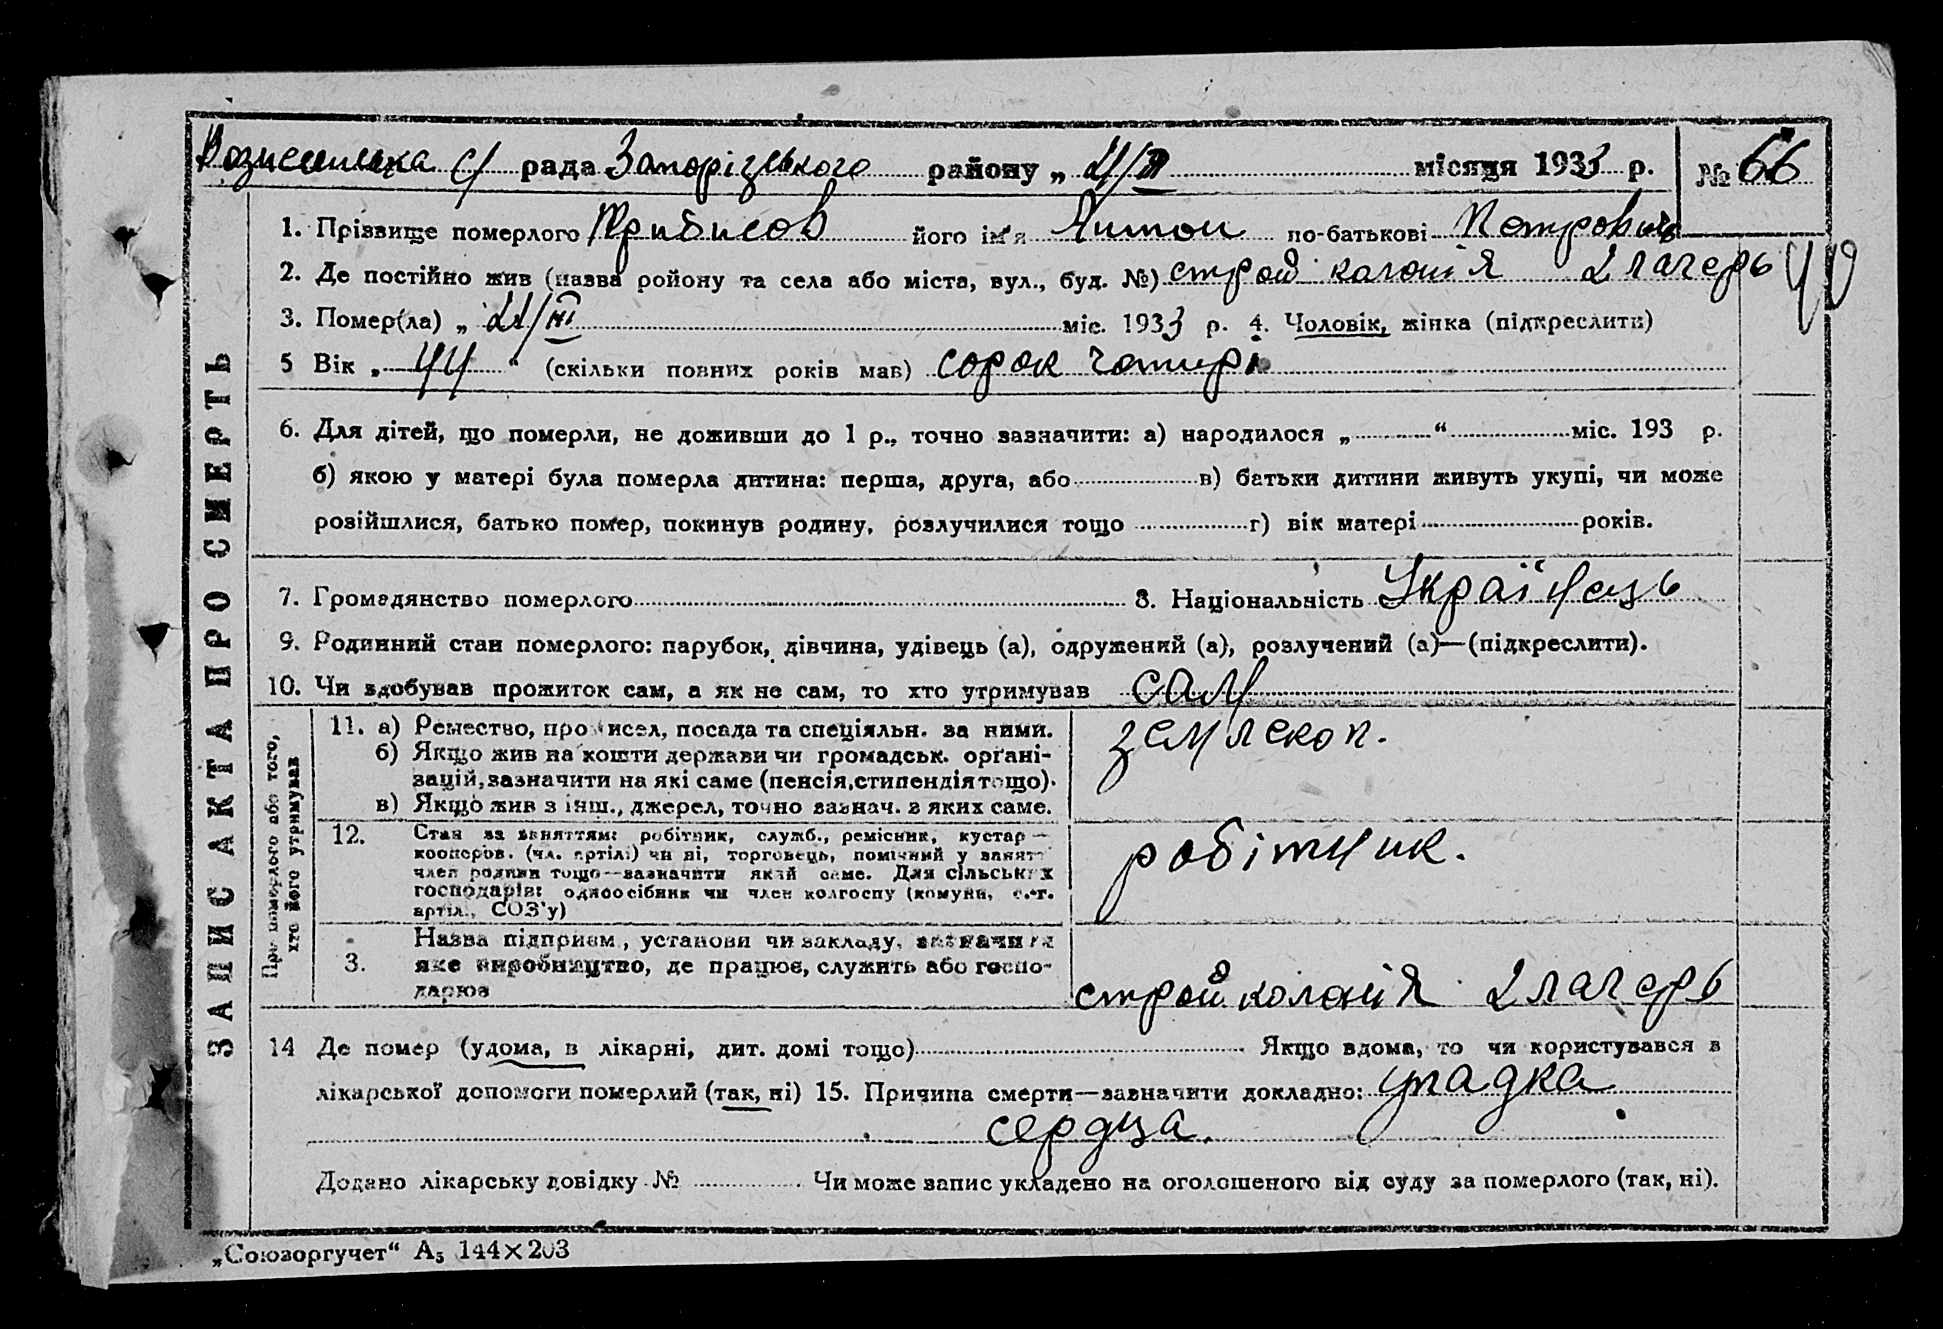 Вознесинка с/ рада Запорізького району „ 21/III місяця 1933 р. № 66
1. Прізвище померлого його ім'я Антон по-батькові Петрович
2. Де постійно жив (назва ройону та села або міста, вул., буд. №) строй колонія 2 лагерь
3. Помер(ла) „ 21/III міс. 1933 р. 4. Чоловік, жінка (підкреслити)
5 Вік „ 44 “ (скільки повних років мав) сорок чотирі
6. Для дітей, що померли, не доживши до 1 р., точно зазначити: а) народилося „ “ міс. 193 р.
б) якою у матері була померла дитина: перша, друга, або в) батьки дитини живуть укупі, чи може
розійшлися, батько помер, покинув родину, розлучилися тощо г) вік матері років.
7. Громадянство померлого 8. Національність Українець
9. Родинний стан померлого: парубок, дівчина, удівець (а), одружений (а), розлучений (а)—(підкреслити).
10. Чи здобував прожиток сам, а як не сам, то хто утримував сам
ЗАПИС АКТА ПРО СМЕРТЬ
Про померлого або того,
хто його утримував
11. а) Ремество, промисел, посада та спеціяльн. за ними. землекоп.
б) Якщо жив на кошти держави чи громадськ. орґані-
зацій, зазначити на які саме (пенсія, стипендія тощо).
в) Якщо жив з інш., джерел, точно зазнач. з яких саме.
12. Стан за заняттям: робітник, служб., ремісник, кустар —
кооперов. (чл. артілі) чи ні, торговець, помічний у занятт
член родини тощо—зазначити який саме. Для сільських робітник.
господарів: одноосібник чи член колгоспу (комуни, с.-г.
артіл., СОЗ'у)
Назва підприєм., установи чи закладу, зазначити
3. яке виробництво, де працює, служить або госпо-
дарює строй колонія 2 лагерь
14 Де помер (удома, в лікарні, дит. домі тощо) Якщо вдома, то чи користувався в
лікарської допомоги померлий (так, ні) 15. Причина смерти—зазначити докладно: упадка
сердца.
Додано лікарську довідку № Чи може запис укладено на оголошеного від суду за померлого (так, ні).
„Союзоргучет“ А5 144×203